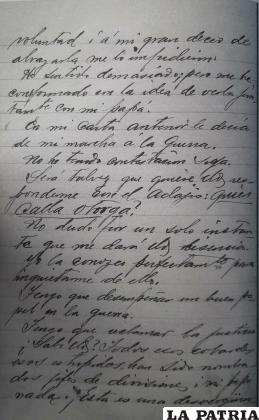 voluntad i á mi gran deseo de
abrazarla me lo impidieron.
He sentido demasiado; pero me he
conformado con la idea de verla
con mi papá.
En mi carta anterior le decía
de mi marcha a la Guerra.
No he tenido contestación Suya.
Será talvez que quiere Ud. res-
ponderme con el Adagio: Quien
Calla Otorga?
No dudo por un solo instan-
te que me dará Ud. 
Yo la conozco perfectamte para
inquietarme de ello.
Tengo que desempeñar un buen pa-
pel en la guerra.
Tengo que reclamar la justicia
¿Sabe Ud? Todos esos cobardes
han sido nombra-
dos jefes de divisiones, i mi papá
nada. ¿Está es una
LA PATRIA